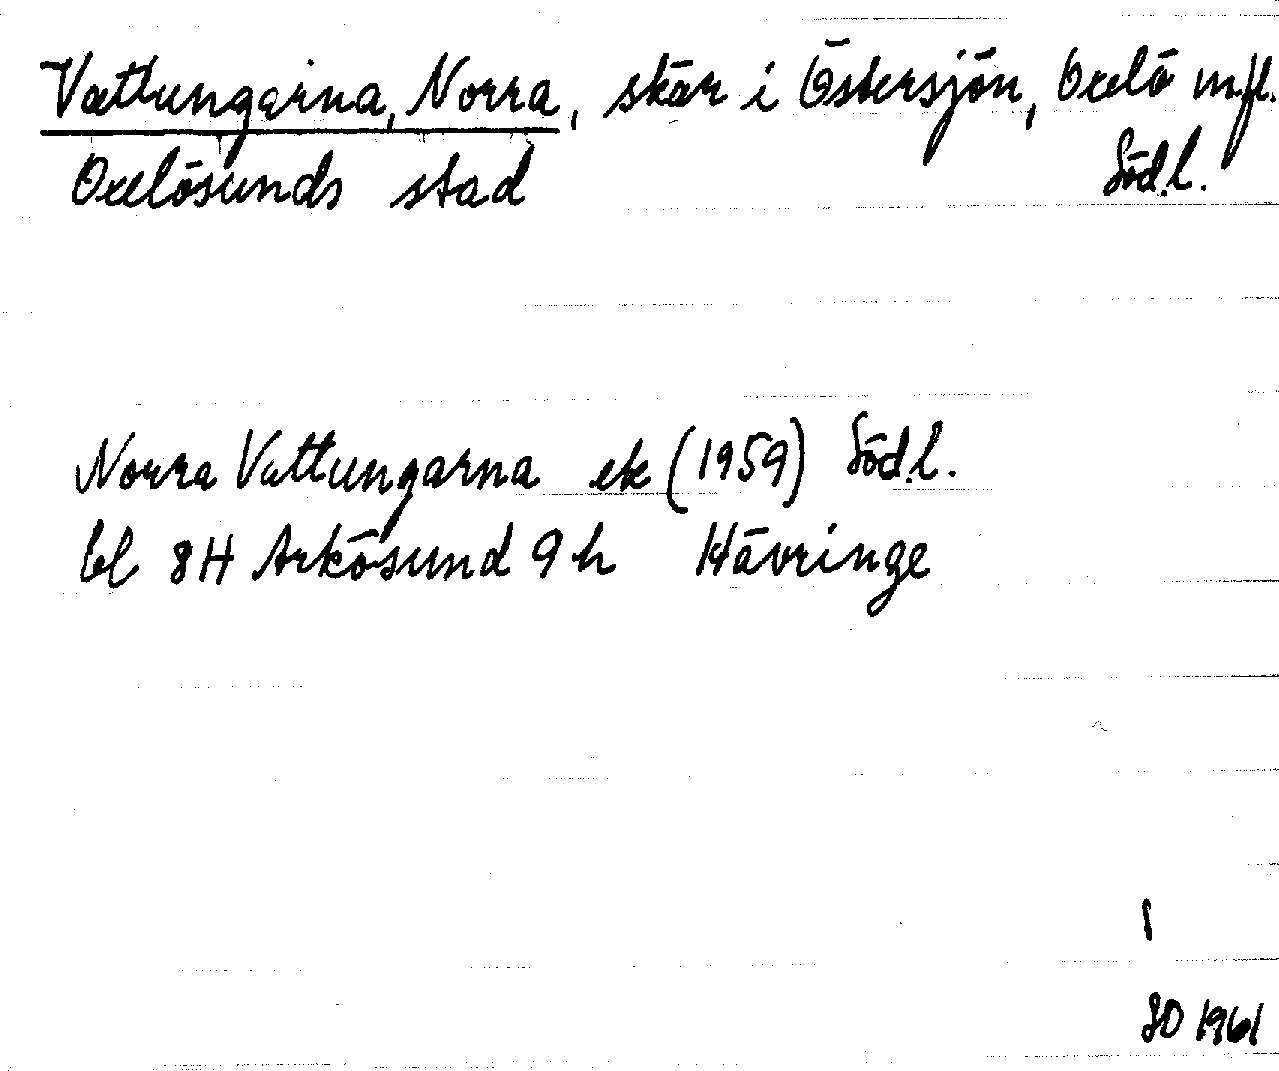 Vattungarna, Norra, skär i Östersjön, Oxelö m.fl.
Oxelösunds stad Södl.
Norra Vattungarna ek (1959) Södl.
bl 8H Arkösund 9h Hävringe
1
SO 1961